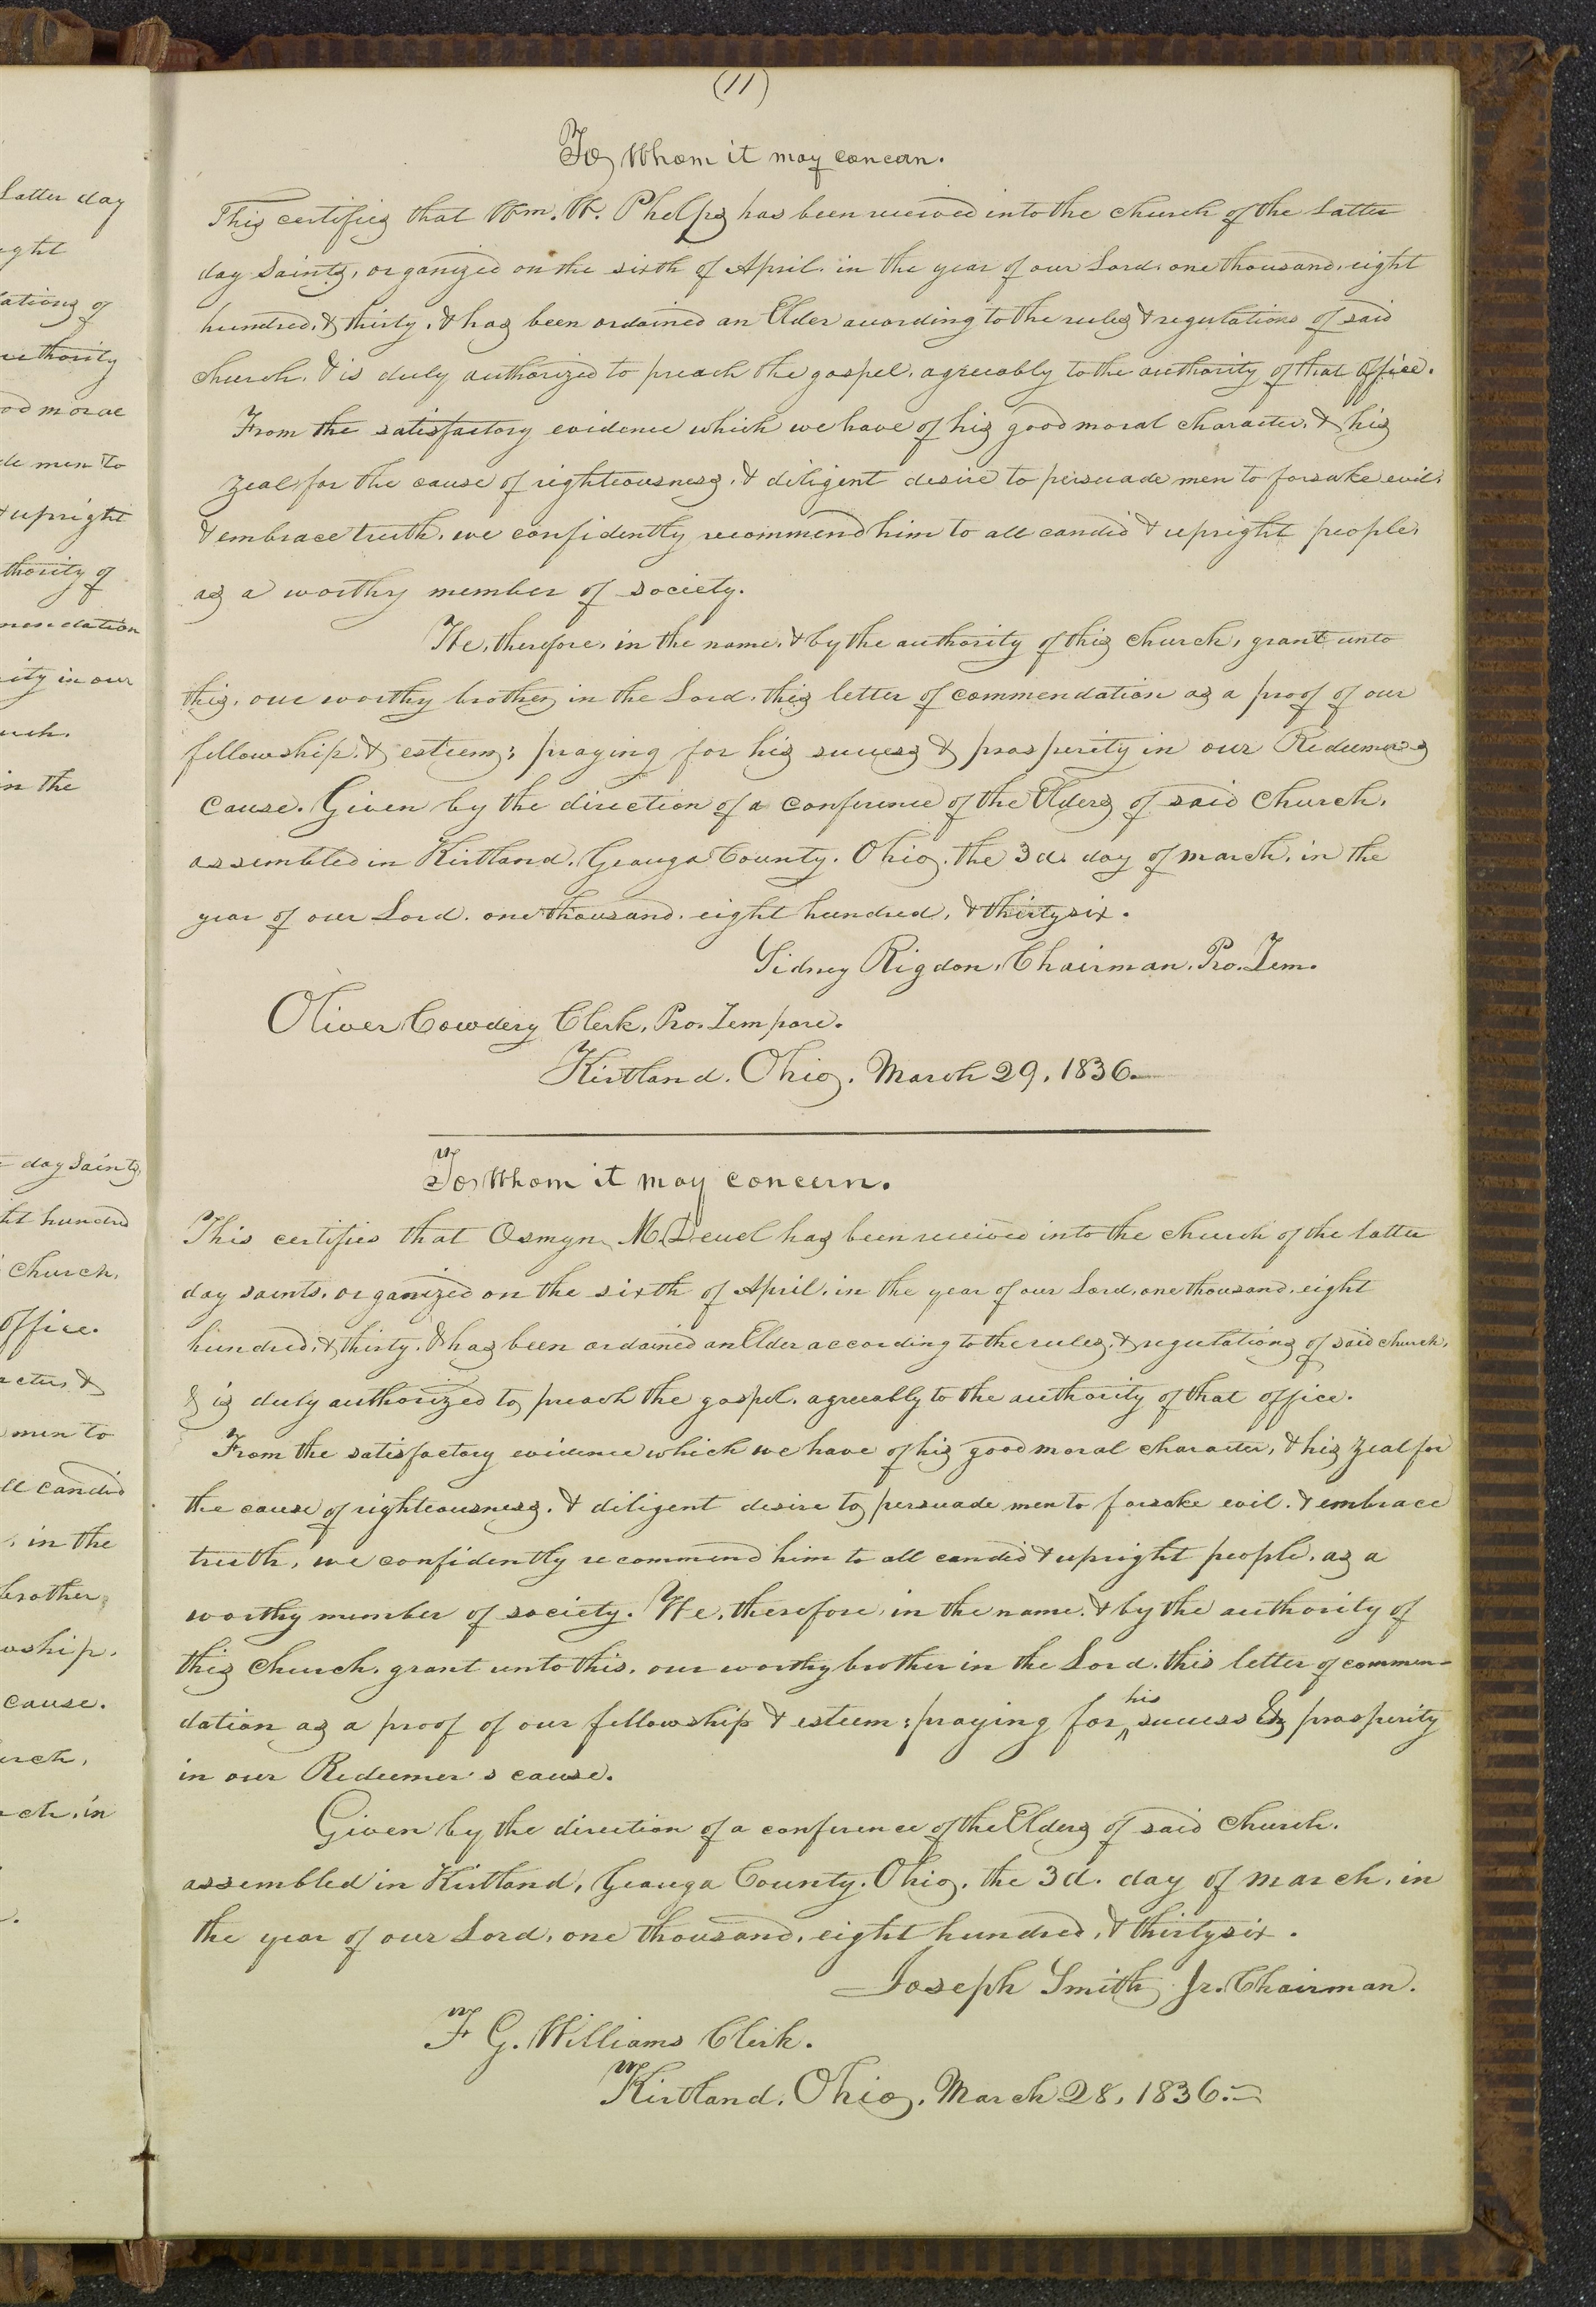 (11)
To Whom it may concern.
This certifies that Wm. W. Phelps has been received into the church of the Latter
day Saints, organized on the sixth of April, in the year of our Lord, one thousand, eight
hundred, & thirty, & has been ordained an Elder according to the rules & regulations of said
church, & is duly authorized to preach the gospel, agreeably to the authority of that office.
From the satisfactory evidence which we have of his good moral character, & his
zeal for the cause of righteousness, & diligent desire to persuade men to forsake evil,
& embrace truth, we confidently recommend him to all candid & upright people,
as a worthy member of society.
We, therefore, in the name, & by the authority of this church, grant unto
this, our worthy brother in the Lord, this letter of commendation as a proof of our
fellowship, & esteem; praying for his success & prosperity in our Redeemers
cause. Given by the direction of a conference of the Elders of said church,
assembled in Kirtland, Geauga County, Ohio, the 3d. day of march, in the
year of our Lord, one thousand, eight hundred, & thirty six.
Sidney Rigdon, Chairman, Pro. Tem.
Oliver Cowdery Clerk, Pro. Tempore.
Kirtland, Ohio, March 29, 1836.
To Whom it may concern.
This certifies that Osmyn M. Deuel has been received into the church of the latter
day saints, organized on the sixth of April, in the year of our Lord, one thousand, eight
hundred, & thirty, & has been ordained an Elder according to the rules, & regulations of said church,
& is duly authorized to preach the gospel, agreeably to the authority of that office.
From the satisfactory evidence which we have of his good moral character, & his zeal for
the cause of righteousness, & diligent desire to persuade men to forsake evil, & embrace
truth, we confidently recommend him to all candid & upright people, as a
worthy member of society. We, therefore, in the name, & by the authority of
this church, grant unto this, our worthy brother in the Lord, this letter of commen-
dation as a proof of our fellowship & esteem; praying for his success & prosperity
in our Redeemer's cause.
Given by the direction of a conference of the Elders of said church,
assembled in Kirtland, Geauga County, Ohio, the 3d. day of march, in
the year of our Lord, one thousand, eight hundred, & thirty six.
Joseph Smith Jr. Chairman.
F G. Williams Clerk.
Kirtland, Ohio, March 28, 1836.